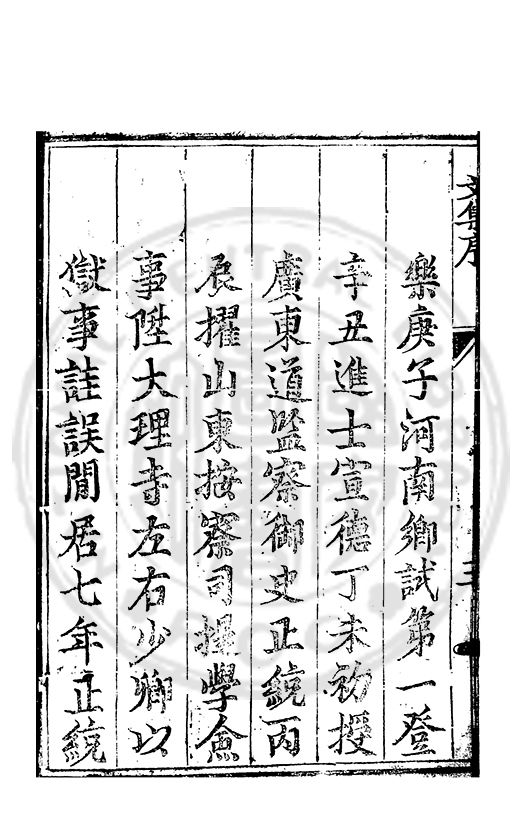 文集序
三
樂庚子河南鄉試第一登
辛丑進士宣德丁未初授
廣東道監察御史正統丙
辰擢山東按察司提學僉
事陞大理寺左右少卿以
獄事註誤閒居七年正統